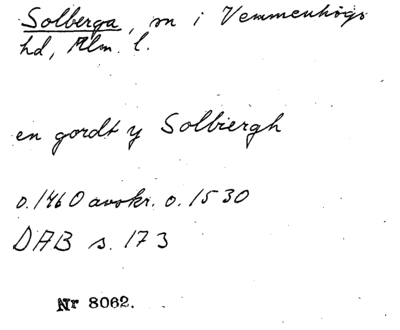 Solberga, sn i Vemmenhögs
hd, Mlm. l.
en gordt y Solbiergh
o. 1460 avskr. o. 1530
DAB s. 173
Nr 8062.